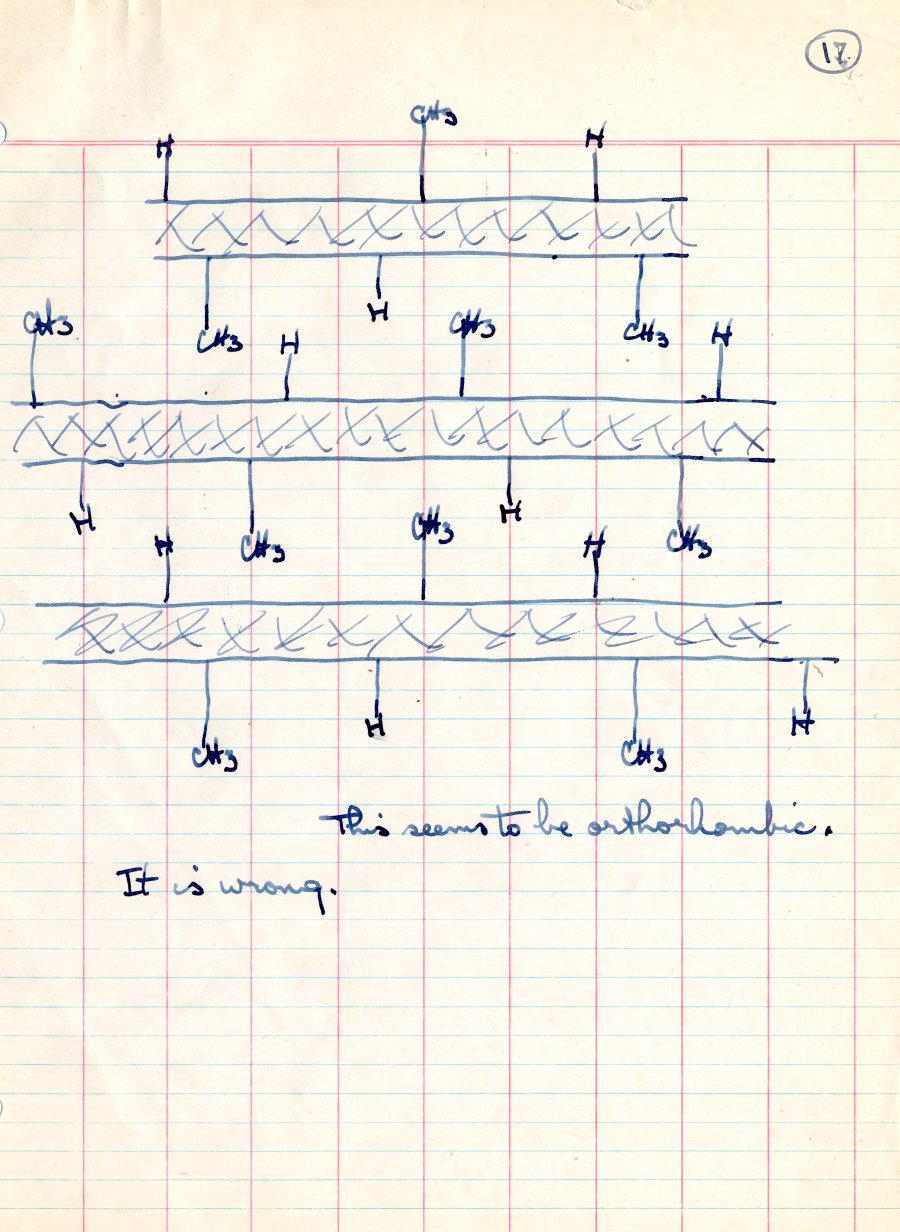 17
CH3
H H
CH3 H CH3
CH3 H CH3 H
H CH3 H CH3
H CH3 H
CH3 H CH3 H
This seems to be orthorhombic.
It is wrong.